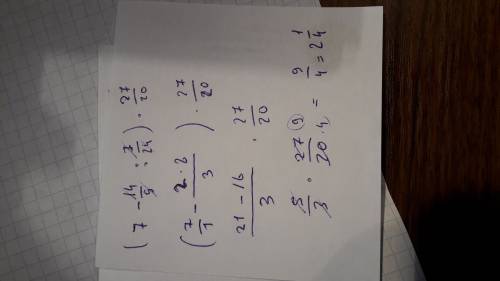 (7 - 14/9 : 7/24) · 27/20
(7/1 - 2·8/3) · 27/20
21 - 16/3 · 27/20
5/3 · 27 9/20 · 4 = 9/4 = 2 1/4